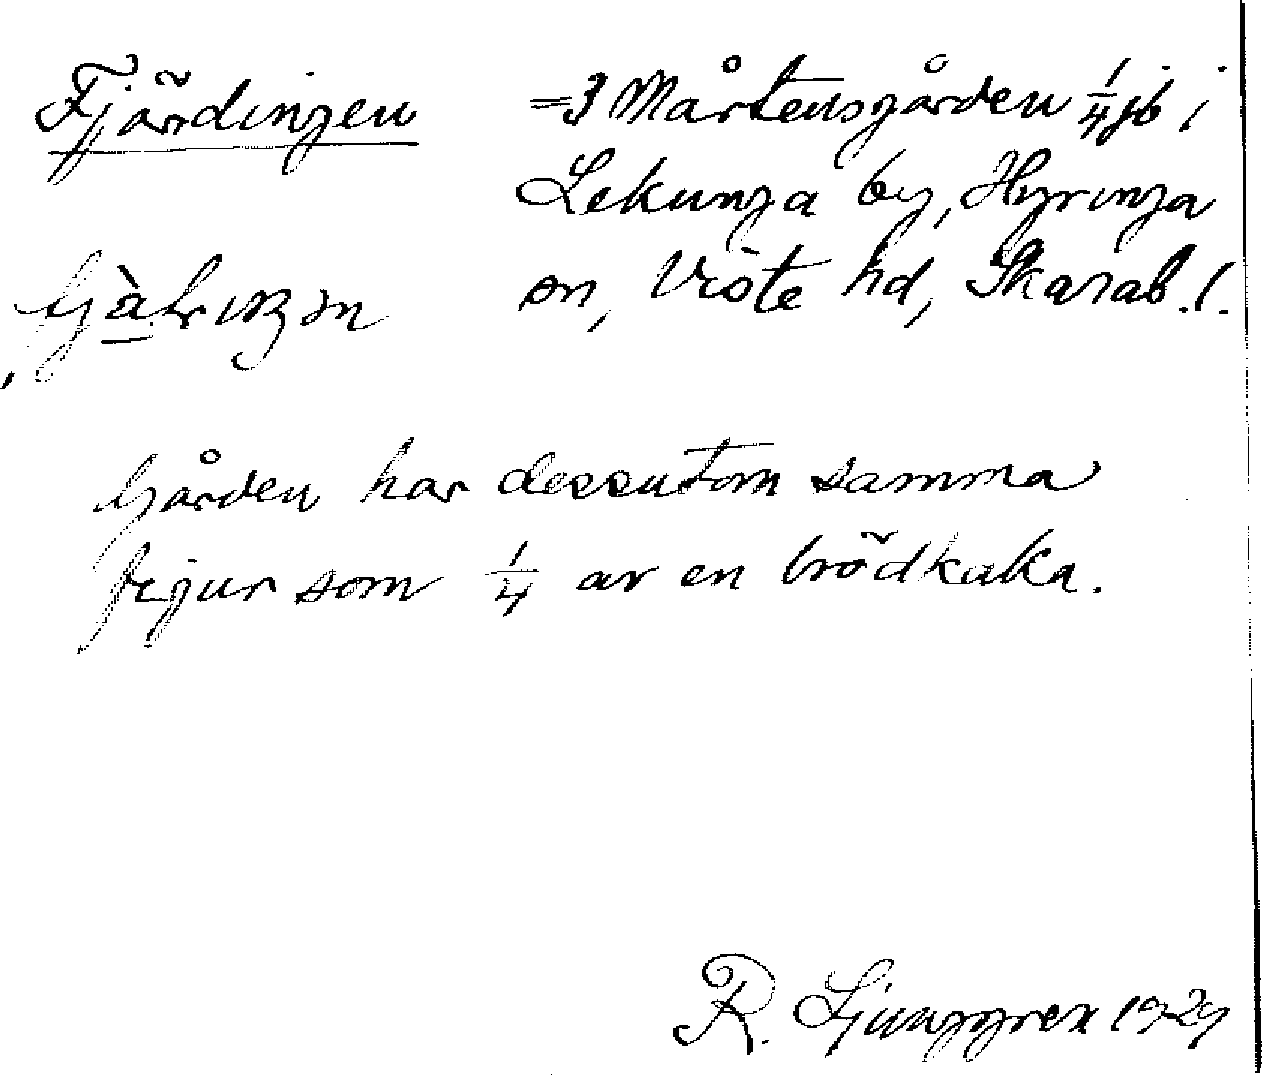 Fjärdingen =3 Mårtensgården 1/4 jb i
Lekunga by, Hyringa
sn, Viste hd, Skarab. l.
Gården har dessutom samma
figur som 1/4 av en brödkaka.
R. Ljunggren 1929